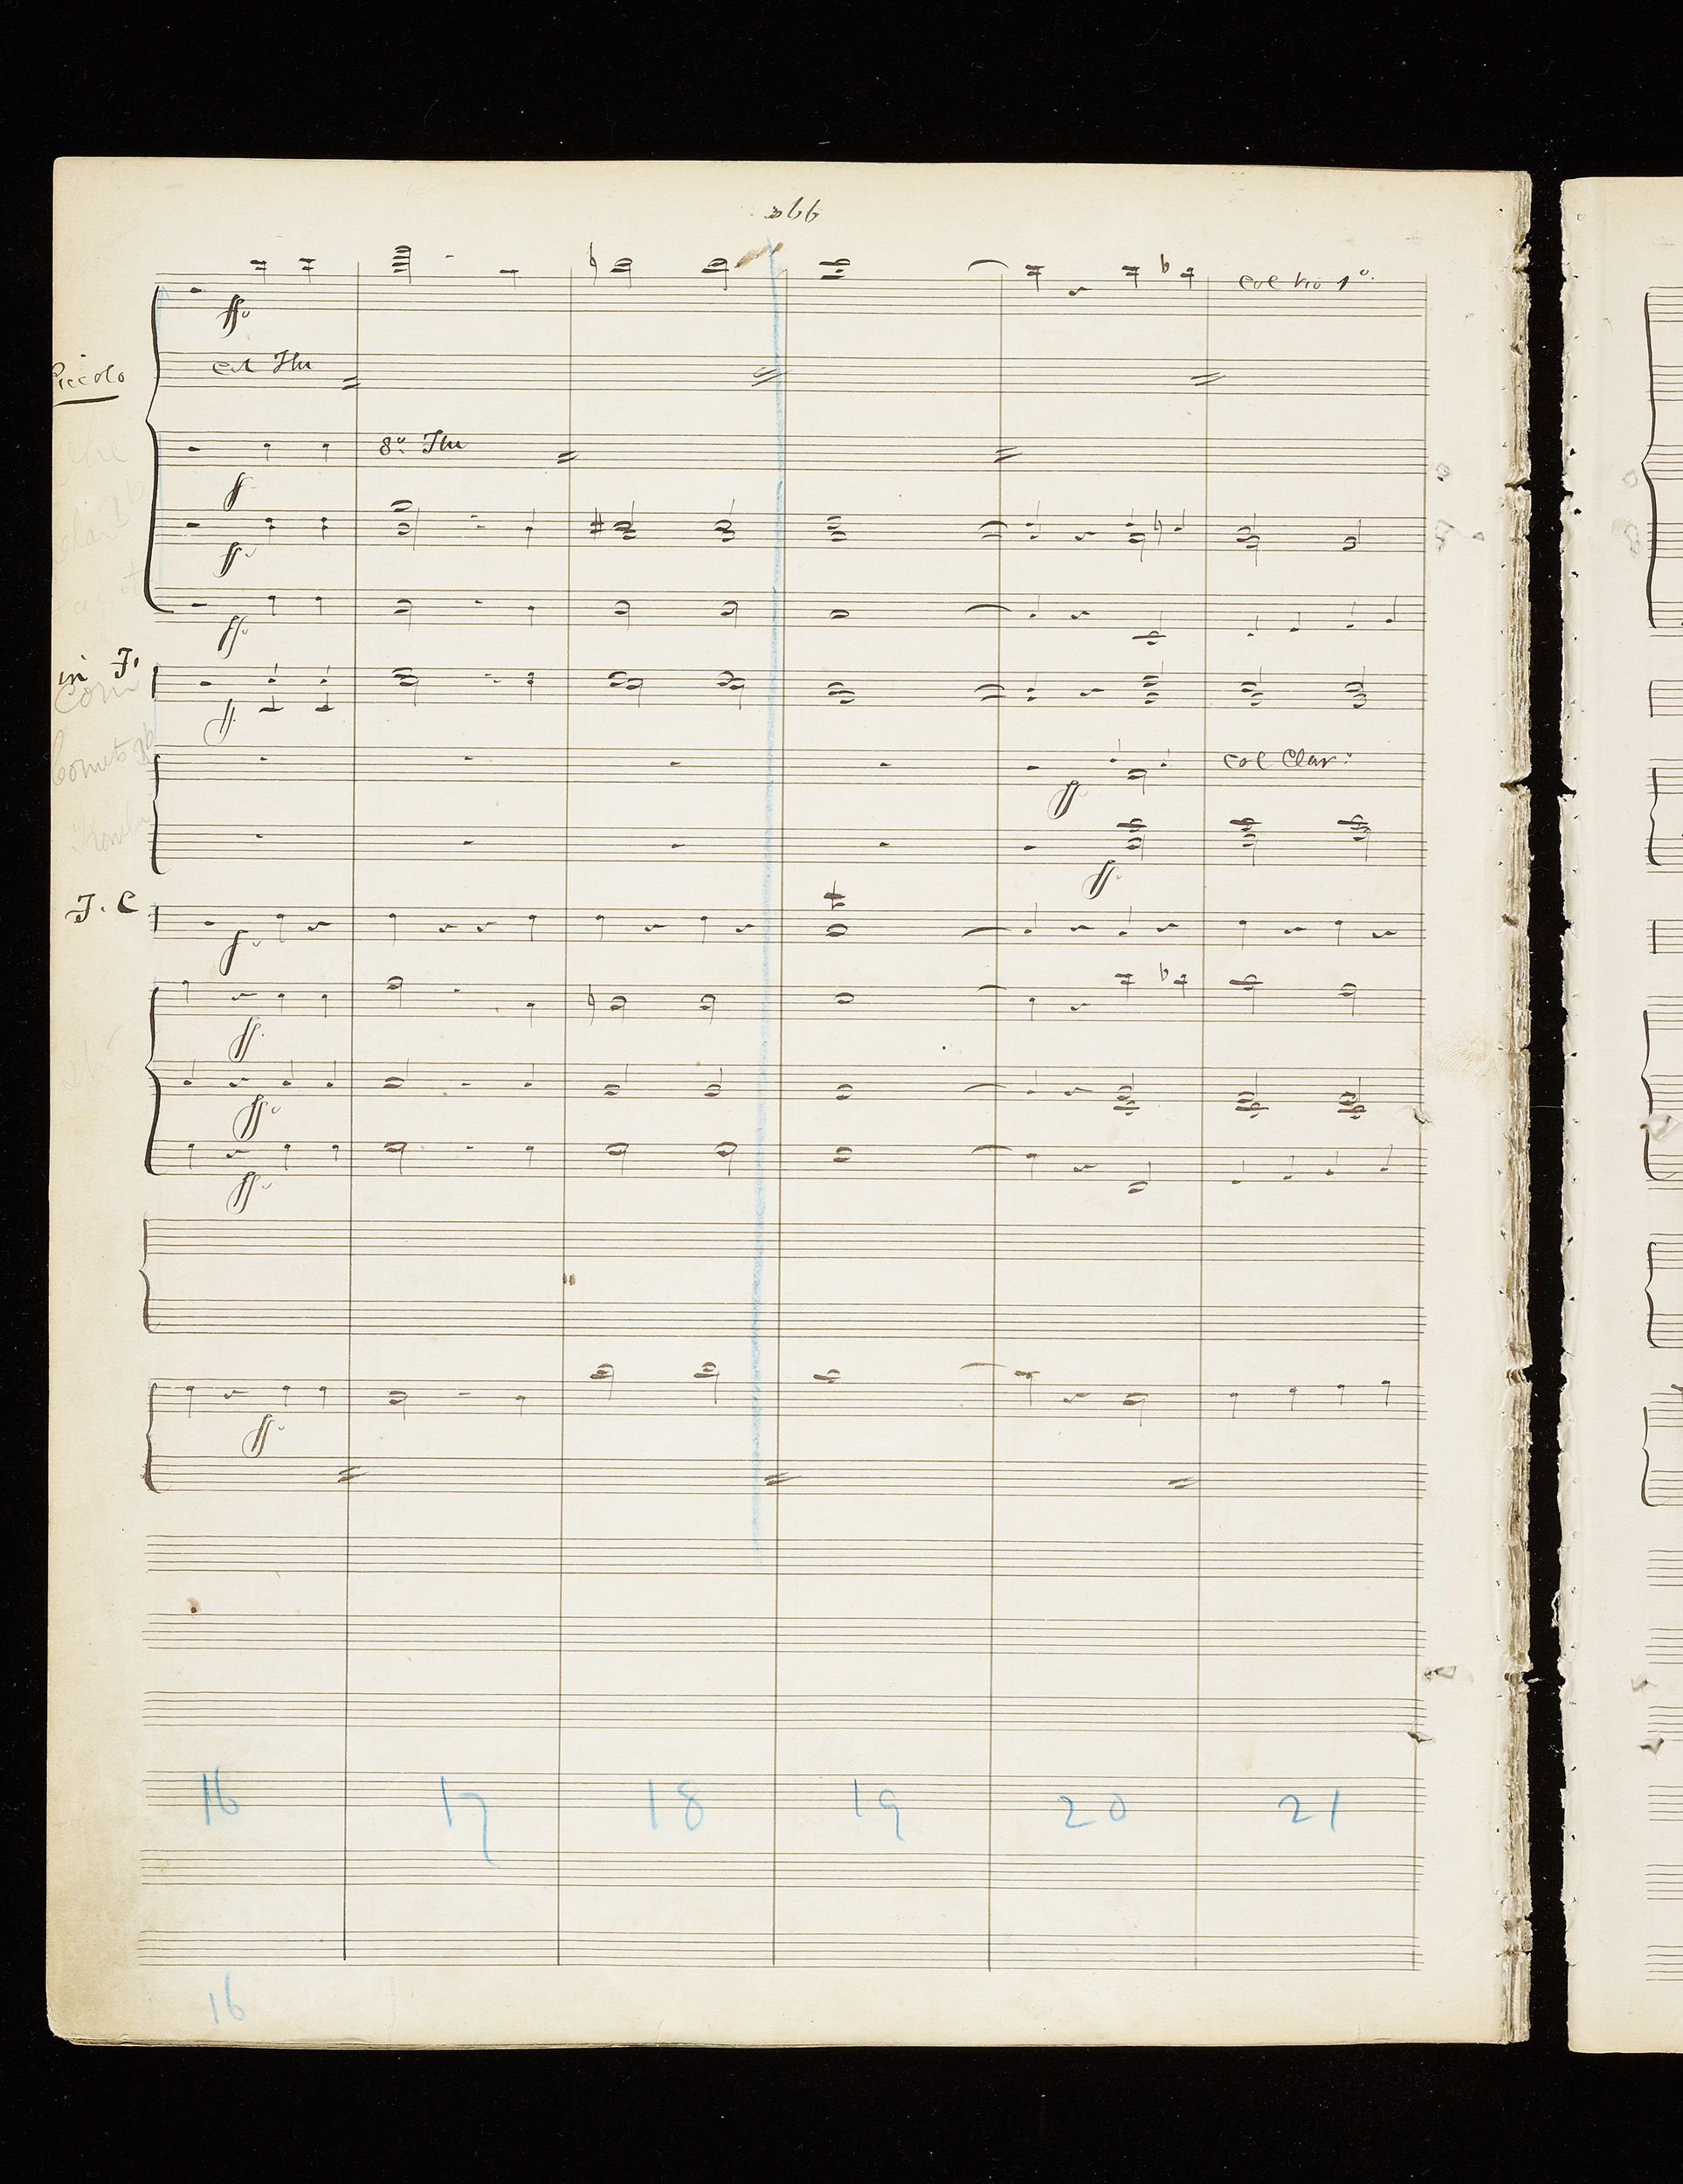 366
col Vio 1º
ff
Piccolo
col Flu
8ª Flu
f
ff
ff
in F.
Corni
ff
Cornets
col Clar:
ff
ff
F. C
f
ff
ff
ff
ff
16 17 18 19 20 21
16